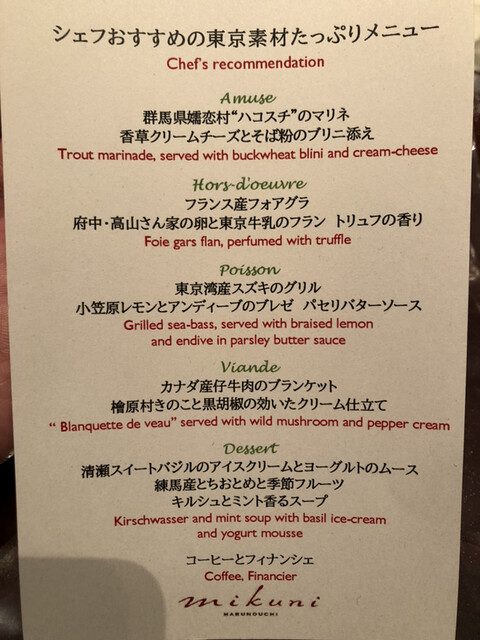 シェフおすすめの東京素材たっぷりメニュー
Chef's recommendation
Amuse
群馬県嬬恋村“ハコスチ”のマリネ
香草クリームチーズとそば粉のブリニ添え
Trout marinade, served with buckwheat blini and cream-cheese
Hors-d'oeuvre
フランス産フォアグラ
府中・高山さん家の卵と東京牛乳のフラン トリュフの香り
Foie gars flan, perfumed with truffle
Poisson
東京湾産スズキのグリル
小笠原レモンとアンディーブのブレゼ パセリバターソース
Grilled sea-bass, served with braised lemon
and endive in parsley butter sauce
Viande
カナダ産仔牛肉のブランケット
檜原村きのこと黒胡椒の効いたクリーム仕立て
“ Blanquette de veau” served with wild mushroom and pepper cream
Dessert
清瀬スイートバジルのアイスクリームとヨーグルトのムース
練馬産とちおとめと季節フルーツ
キルシュとミント香るスープ
Kirschwasser and mint soup with basil ice-cream
and yogurt mousse
コーヒーとフィナンシェ
Coffee, Financier
mikuni
MARUNOUCHI